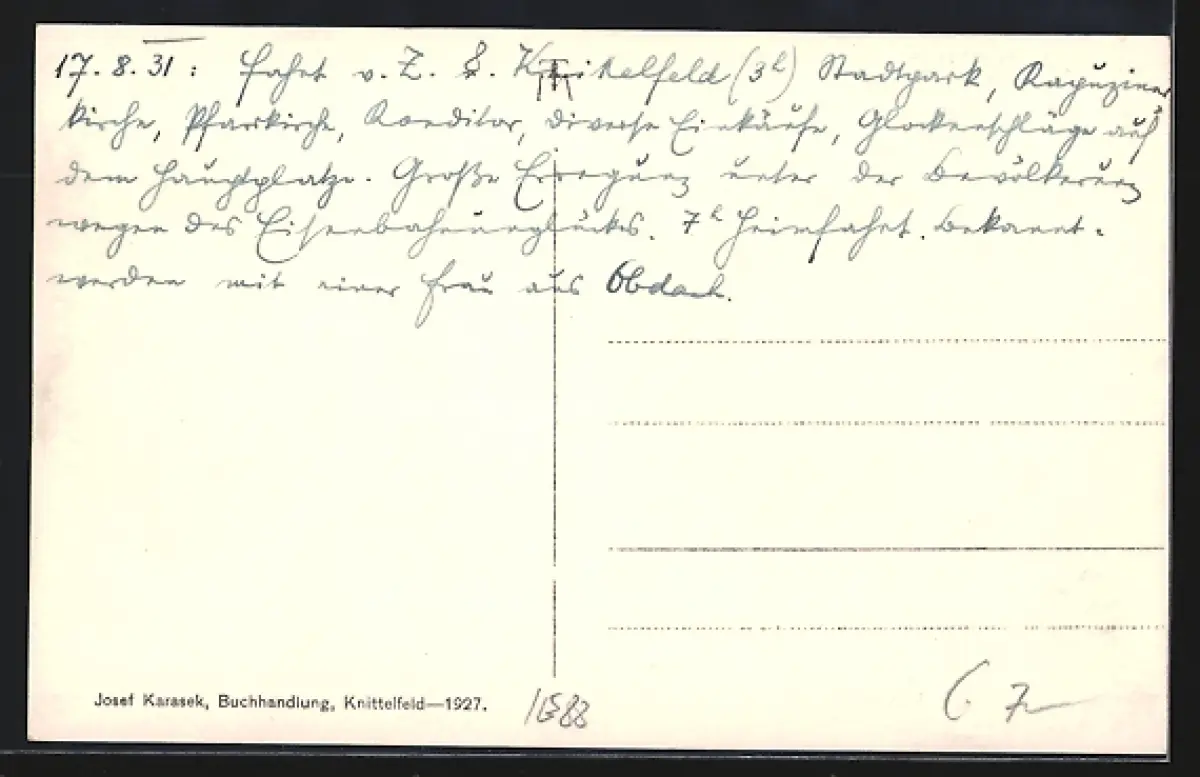 17. 8. 31 : Fahrt v. Z. n. Knittelfeld (3h) Stadtpark, Kapuziner
kirche, Pfarrkirche, Konditor, diverse Einkäufe, Glockenschläge auf
dem Hauptplatze. Große Erregung unter der Bevölkerung
wegen des Eisenbahnunglückes. 7h Heimfahrt. Bekannt-
werden mit einer Frau aus Obdach.
Josef Karasek, Buchhandlung, Knittelfeld—1927.